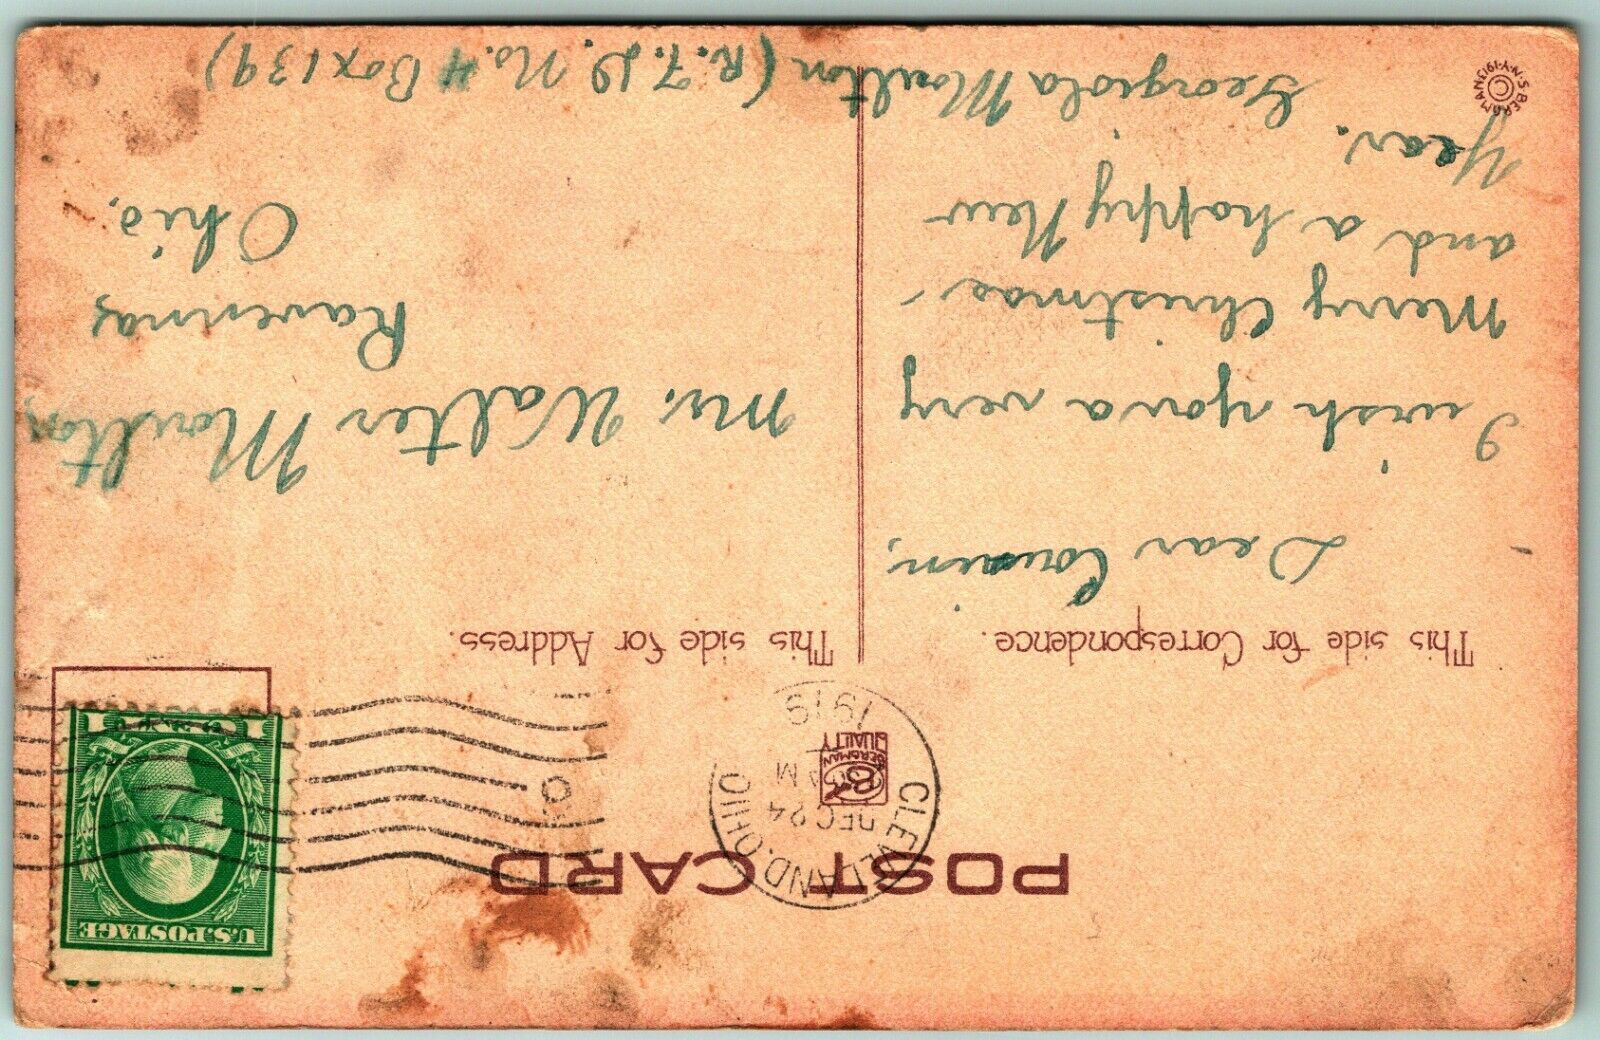 POST CARD
CLEVELAND. OHIO
DEC 24
M
1919
BERGMAN
QUALITY
U.S. POSTAGE
1 1
This side for Correspondence.
This side for Address.
Dear Cousin,
I wish you a very
Merry Christmas
and a happy New
Year.
Georgiola Moulton (R.F.D. No. 4 Box 139)
Mr. Walter Moulton,
Ravenna,
Ohio.
© S. BERGMAN N.Y. 1913